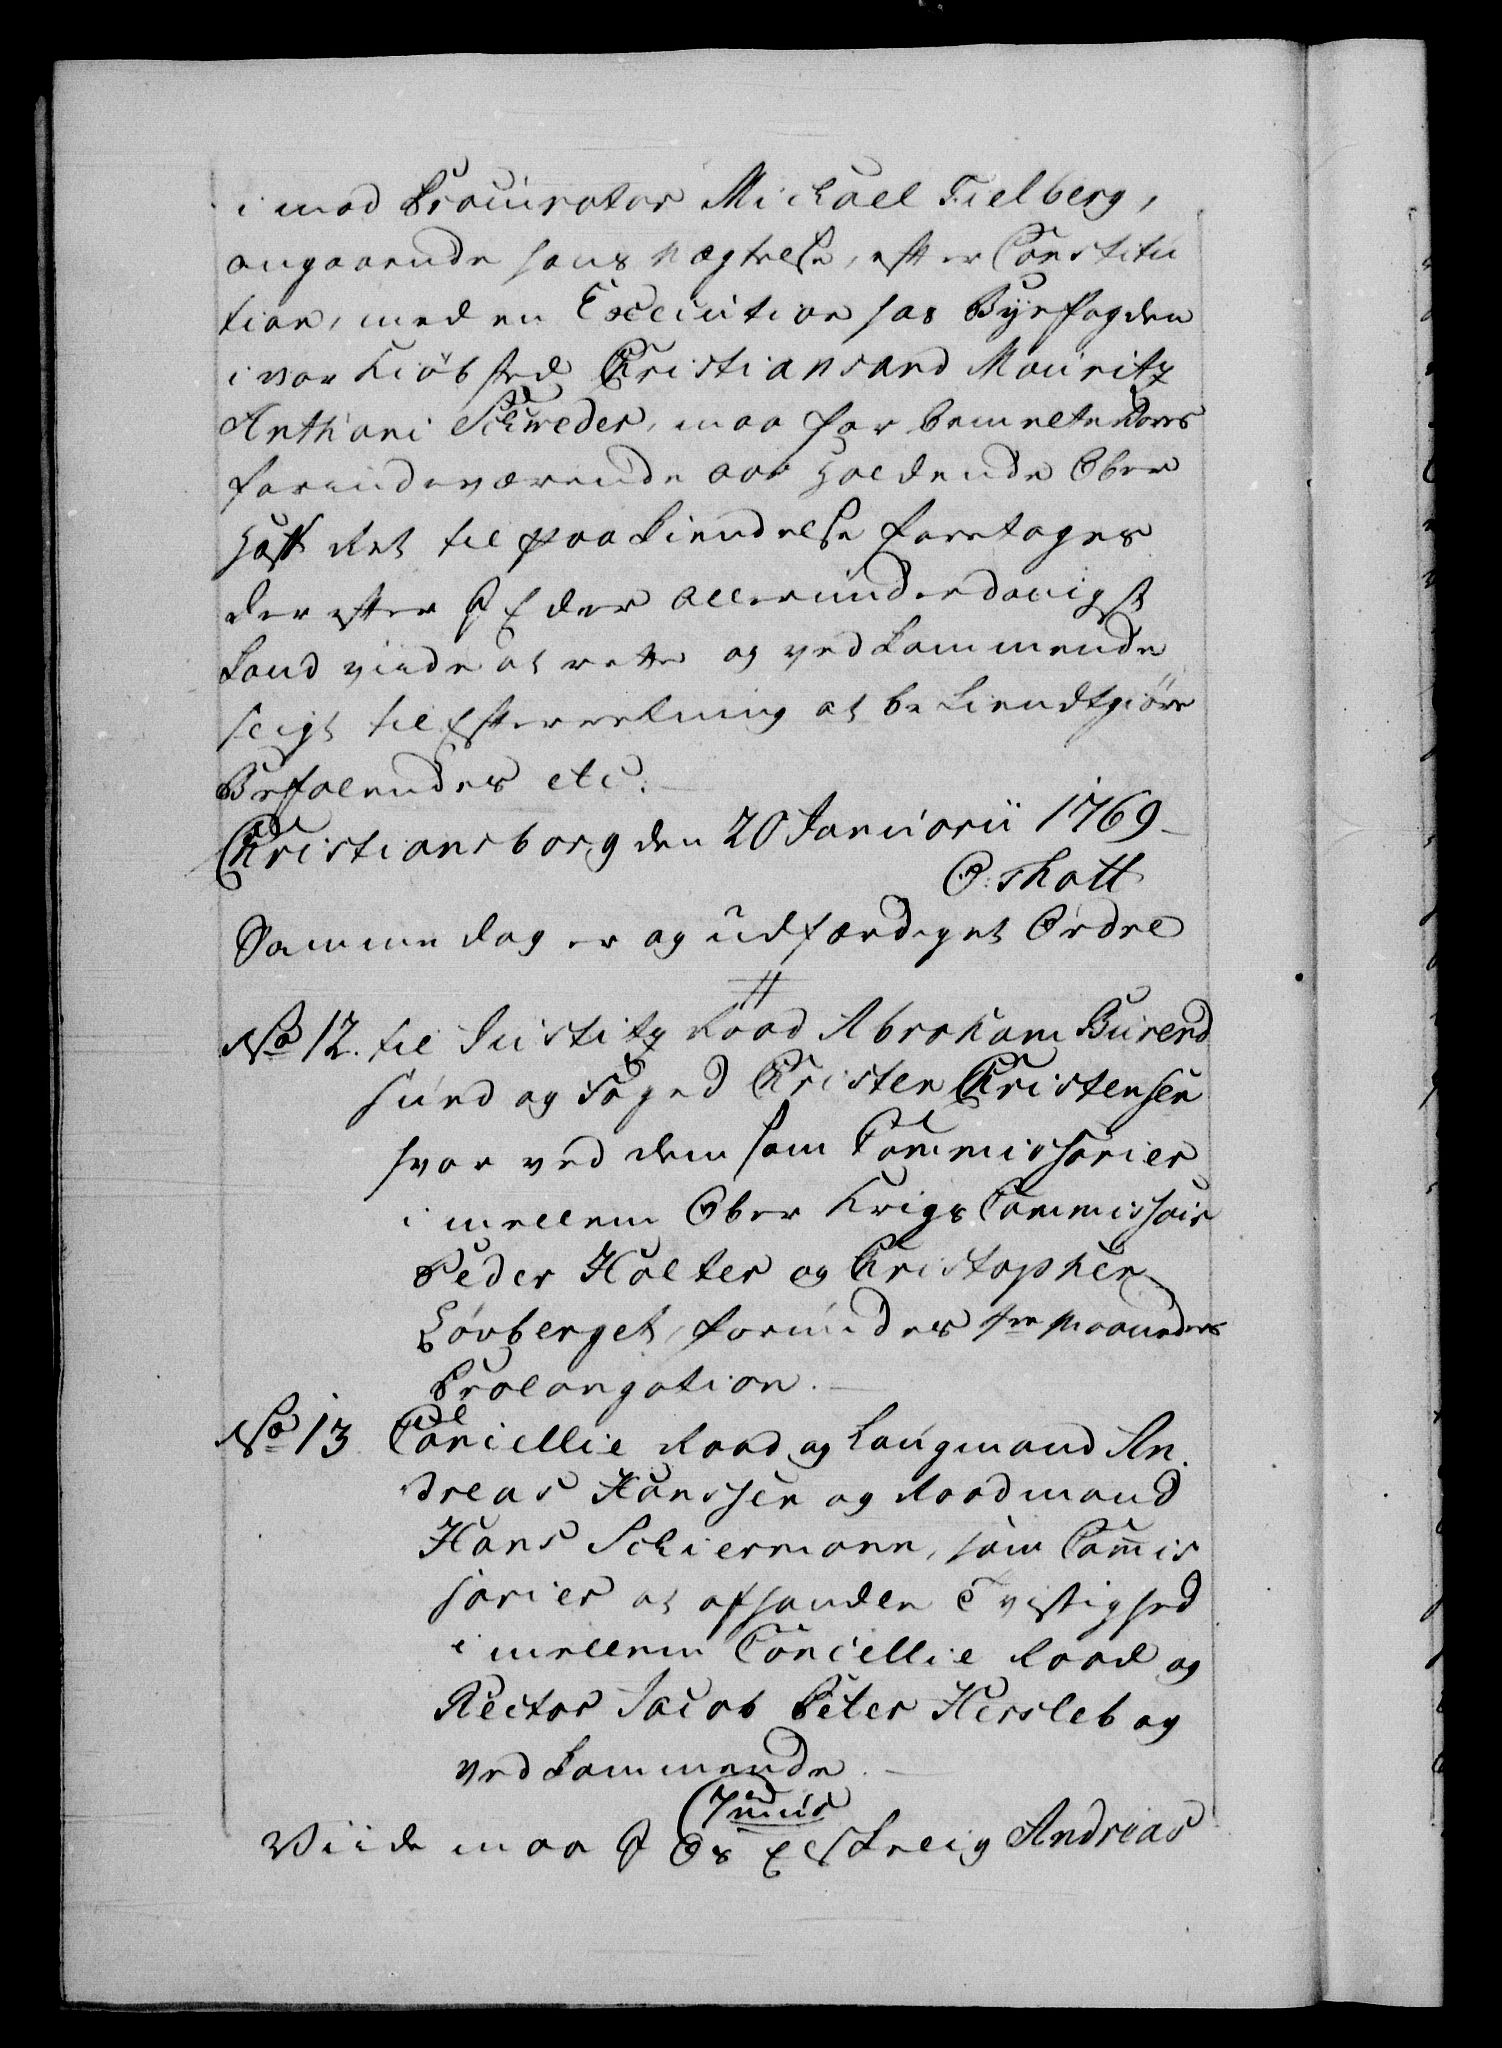 imod Procurator Michael Fielberg,
angaaende hans Nægtelse, efter Constitu
tion, med en Execution hos Byefogden
i vor Kiöbsted Christiansand Mouritz
Anthoni Schweder, maa for bemelte Vores
for indeværende Aar holdende Ober
Hoff Ret til paa Kiendelse foretages
der efter I Eder allerunderdanigst
kand viide at rette og vedkommende
sligt til Efterretning at bekiendtgiöre
Befalendes etc.
Christiansborg den 20 Januarii 1769
O: Thott
Samme dag er og udfærdiget Ordre
No 12. til Justitz Raad Abraham Burend
sund og Foged Christen Christensen
hvor ved dem som Commissarier
imellem Ober Krigs Commissair
Peder Holter og Christopher
Lövberget, forundes 4re Maaneders
Prolongation.
No 13 Cancellie Raad og Laugmand An
dreas Hanssen og Raadmand
Hans Schiermann, som Com̅is
sarier at afhandle Tvistighed
imellem Cancellie Raad og
Rector Jacob Peter Hersleb og
vedkommende.
7mus
Viide maa I Os Elskelig Andreas